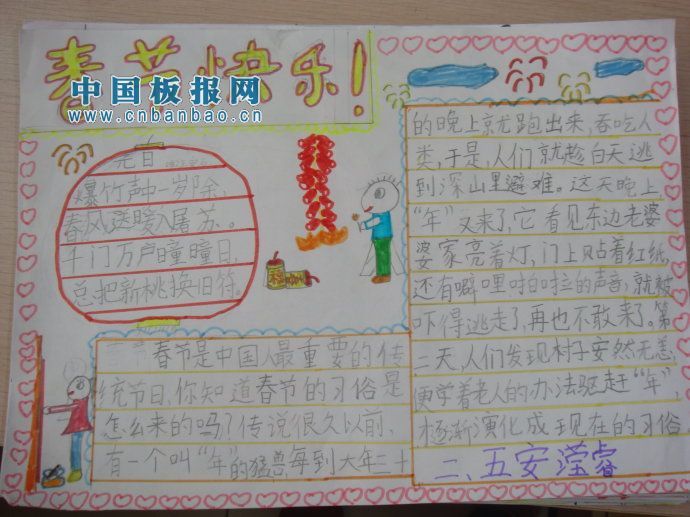 春节快乐！
中国板报网
www.cnbanbao.cn
元日
爆竹声中一岁除，
春风送暖入屠苏。
千门万户曈曈日，
总把新桃换旧符。
春节是中国人最重要的传
统节日，你知道春节的习俗是
怎么来的吗？传说很久以前，
有一个叫“年”的猛兽每到大年三十
的晚上就跑出来，吞吃人
类，于是，人们就趁白天逃
到深山里避难。这天晚上
“年”又来了，它看见东边老婆
婆家亮着灯，门上贴着红纸，
还有噼哩啪啦的声音，就被
吓得逃走了，再也不敢来了。第
二天，人们发现村子安然无恙，
便学着老人的办法驱赶“年”，
逐渐演化成现在的习俗
二、五安滢睿